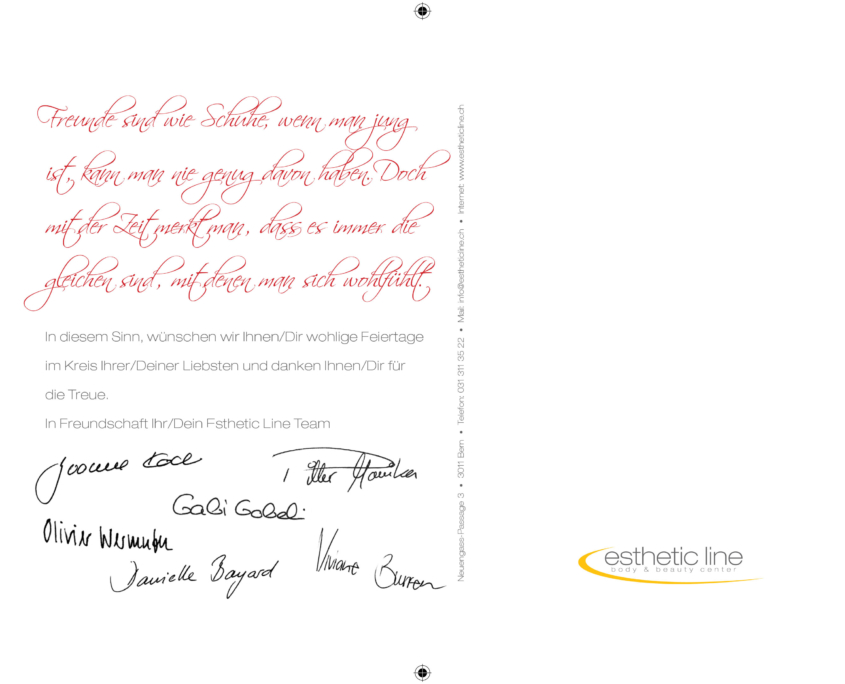 Freunde sind wie Schuhe, wenn man jung
ist, kann man nie genug davon haben. Doch
mit der Zeit merkt man, dass es immer die
gleichen sind, mit denen man sich wohlfühlt.
In diesem Sinn, wünschen wir Ihnen/Dir wohlige Feiertage
im Kreis Ihrer/Deiner Liebsten und danken Ihnen/Dir für
die Treue.
In Freundschaft Ihr/Dein Esthetic Line Team
Gabi Gobeli
Olivier Wermuth
Danielle Bayard
Viviane Burren
Neuengass-Passage 3 • 3011 Bern • Telefon: 031 311 35 22 • Mail: info@estheticline.ch • Internet: www.estheticline.ch
esthetic line
body & beauty center